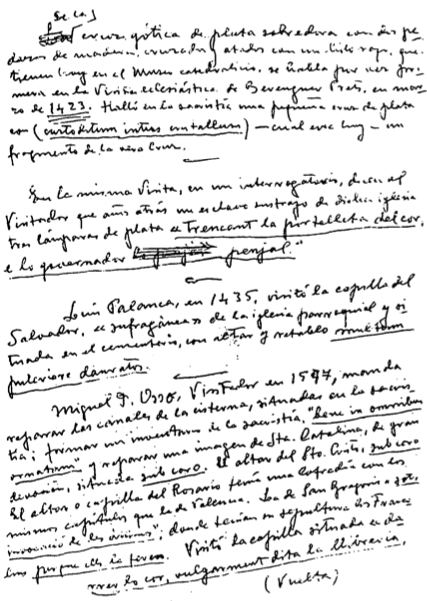 De la
cruz gótica de plata sobredorada con dos pe-
dazos de madera, cruzados y atados con un hilo rojo, que
tienen hoy en el Museo catedralicio, se habla por vez pri-
mera en la Visita eclesiástica de Berenguer Prats, en mar-
zo de 1423. Halló en la sacristía una pequeña cruz de plata
con (custoditum intus cristallum) — cual era hoy — un
fragmento de la vera Cruz.
En la misma Visita, en un interrogatorio, dicen al
Visitador que años atrás un esclavo sustrajo de dicha iglesia
tres lámparas de plata "e trencant la portelleta del cor,
e lo governador penjal."
Luis Palanca, en 1435, visitó la capilla del
Salvador, "sufragánea" de la iglesia parroquial y si-
tuada en el cementerio, con altar y retablo multum
pulcriore daurato.
Miguel J. Osso, Visitador en 1597, manda
reparar las canales de la cisterna, situadas en la sacris-
tía; firmar un inventario de la sacristía, "bene in omnibus
ornatam" y reparar una imagen de Sta. Catalina, de gran
devoción, situada sub coro. El altar del Sto. Cristo, sub coro
El altar o capilla del Rosario tenía una Cofradía con los
mismos capítulos que la de Valencia. La de San Gregorio "sots
invocació de les ànimes"; donde tenían su sepultura los Frances
Visitó la capilla situada
lo cor, vulgarment dita la llibreria.
(Vuelta)